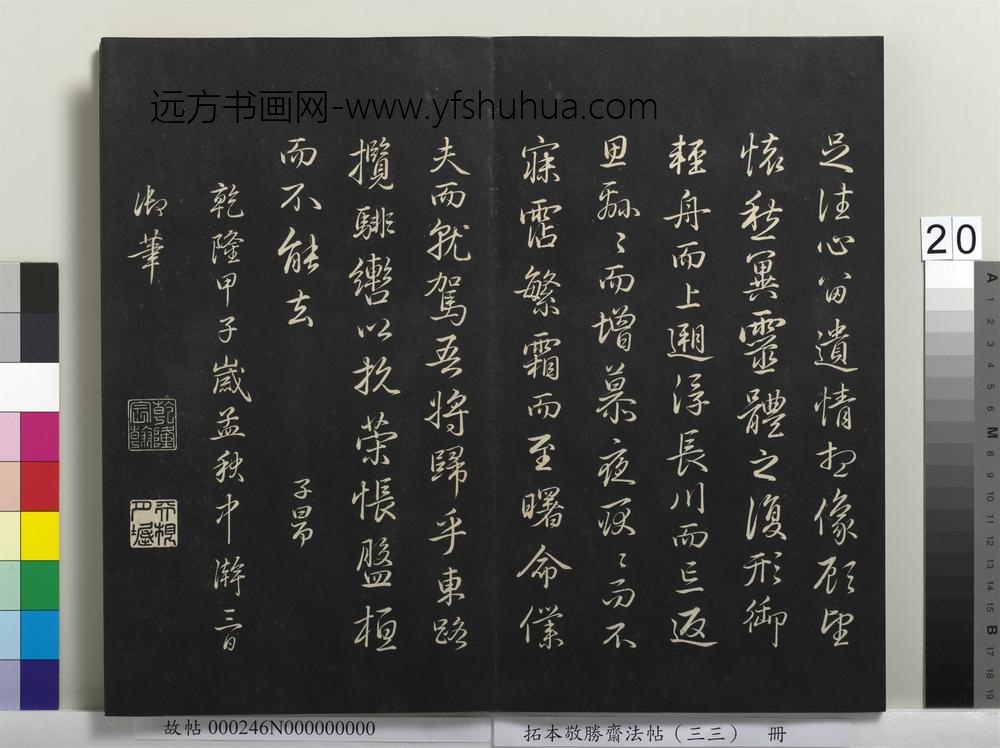 远方书画网-www.yfshuhua.com
足往心留遺情想像顧望
懷愁冀靈體之復形御
輕舟而上遡浮長川而忘返
思緜〻而增慕夜耿〻而不
寐霑繁霜而至曙命僕
夫而就駕吾將歸乎東路
攬騑轡以抗策悵盤桓
而不能去
子昂
乾隆甲子歲孟秋中澣三日
御筆
乾隆宸翰
故帖 000246N000000000
拓本敬勝齋法帖（三三） 冊
20
A
1
2
3
4
5
6
M
8
9
10
11
12
13
14
15
B
17
18
19